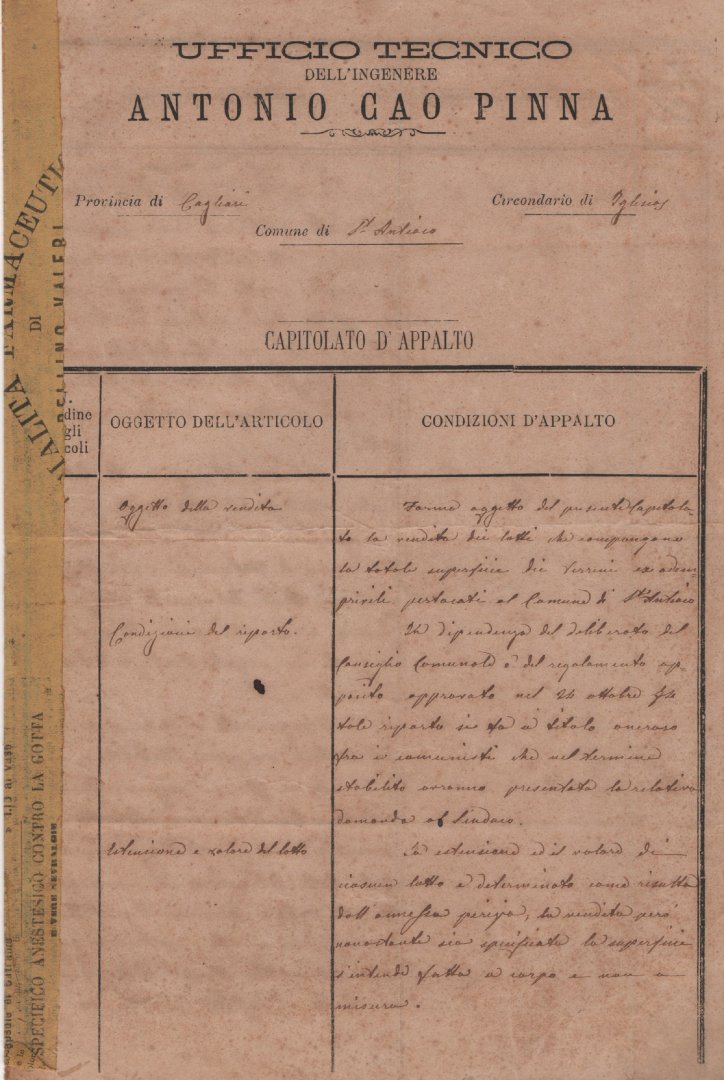 UFFICIO TECNICO
DELL'INGENERE
ANTONIO CAO PINNA
Provincia di Cagliari
Circondario di Iglesias
Comune di St. Antioco
CAPITOLATO D'APPALTO
dine
gli
coli
OGGETTO DELL'ARTICOLO
CONDIZIONI D'APPALTO
Oggetto della vendita
Forma oggetto del presente Capitola-
to la vendita dei lotti che compongono
la totale superficie dei terreni ex adem-
privili pertoccati al Comune di St. Antioco
Condizioni del riparto.
In dipendenza del deliberato del
Consiglio Comunale e del regolamento ap-
posito approvato nel 24 ottobre 74
tale riparto si fa a titolo oneroso
fra i comunisti che nel termine
stabilito avranno presentata la relativa
domanda al Sindaco.
Estensione e valore del lotto
La estensione ed il valore di
ciascun lotto è determinato come risulta
dall'annessa perizia, la vendita però
nonostante sia specificata la superficie
s'intende fatta a corpo e non a
misura.
IALITÀ FARMACEUTIC
DI
VALERI
SPECIFICO ANESTESICO CONTRO LA GOTTA
E VERE NEVRALGIE